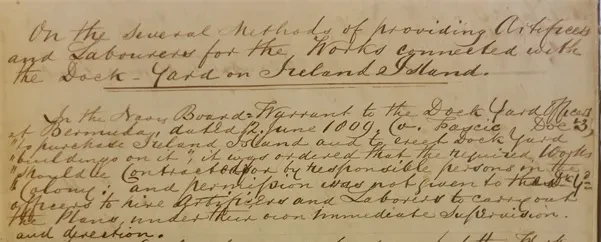 On the several Methods of providing Artificers
and Labourers for the Works connected with
the Dock-Yard on Ireland Island.
In the Navy Board Warrant to the Dock Yard Officers
at Bermuda, dated 2. June 1809, (v. Fascic Doc 3)
"to purchase Ireland Island and to erect Dock Yard
"buildings on it", it was ordered that the required Works
"should be Contracted for by responsible persons in the
"Colony; and permission was not given to the D. Yd
officers to hire Artificers and Laborers to carry out
the Plans, under their own immediate Supervision.
and direction.